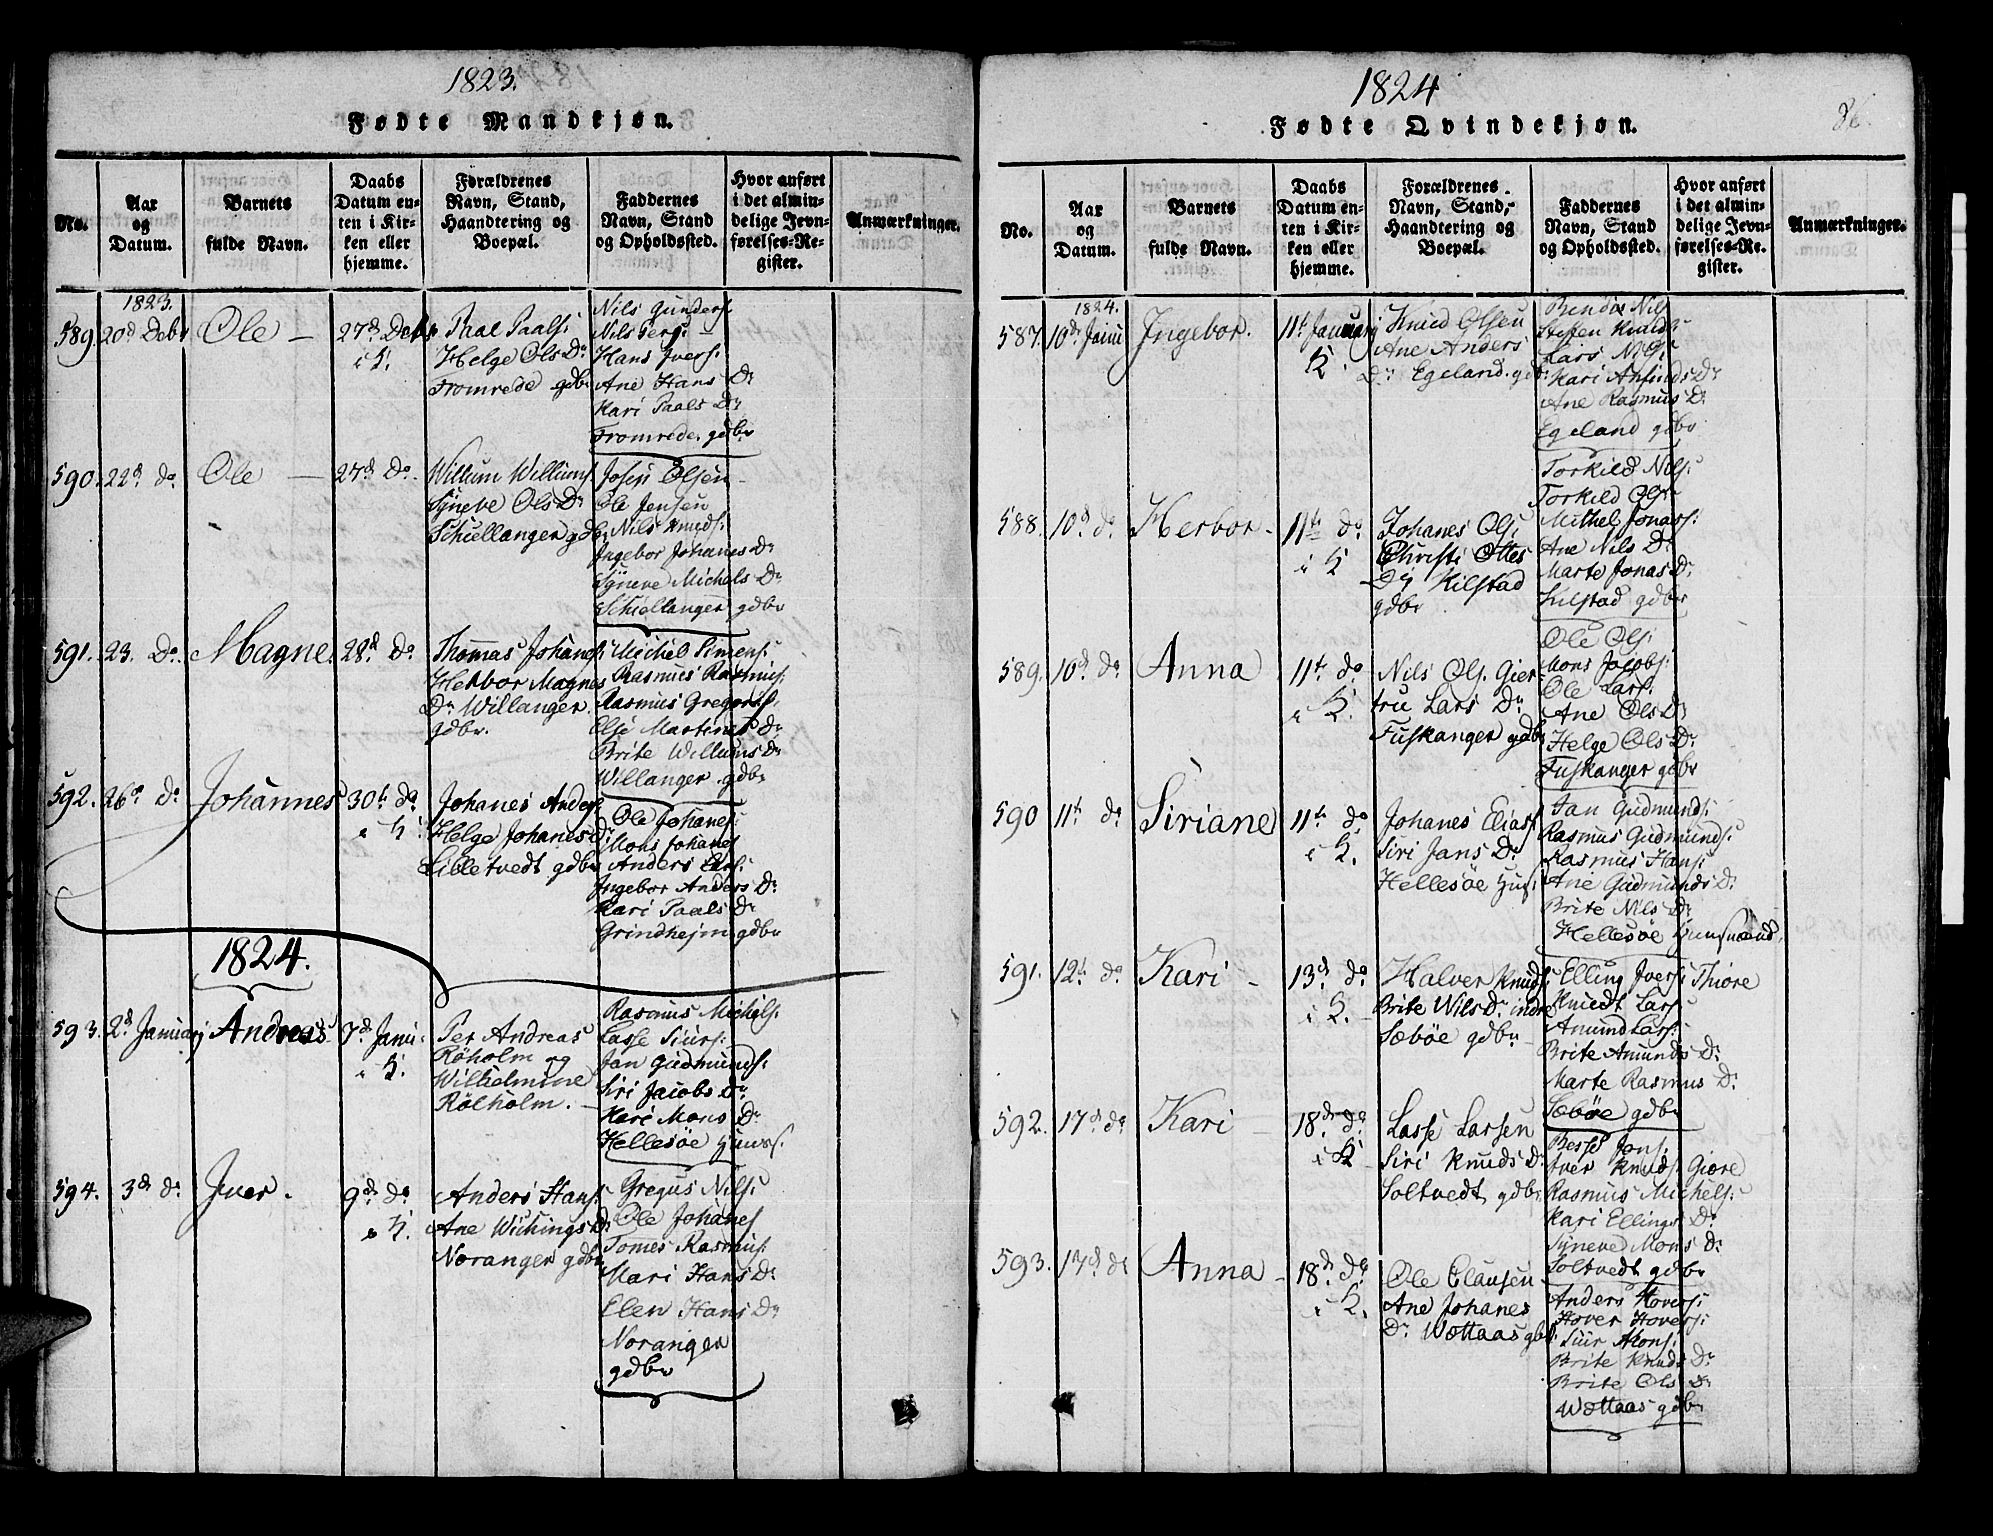 1823.
Fødte Mandkjøn.
No.
Aar og Datum.
Barnets fulde Navn.
Daabs Datum enten i Kirken eller hjemme.
Forældrenes Navn, Stand, Haandtering og Boepæl.
Faddernes Navn, Stand og Opholdssted.
Hvor anført i det almindelige Jevnførelses-Register.
Anmærkninger.
1823.
589. 20d Debr Ole — 27d Debr i K.
Paal Paals:
Helge Ols Dr
Fromrede gdbr
Nils Gunders:
Nils Pers:
Hans Ivers:
Ane Hans Dr
Kari Paals Dr
Fromrede gdbr
590. 22d do Ole — 27d Do.
Willum Willums:
Syneve Ols Dr
Schiellanger gdbr
Josep Olsen
Ole Jensen
Nils Knuds:
Ingebor Johanes Dr
Syneve Michels Dr
Schiellanger gdbr
591. 23. Do. Magne 28d do
Thomas Johanes:
Herbor Magnes
Dr Willanger
gdbr.
Michel Simens:
Rasmus Rasmus:
Rasmus Gregorius:
Olse Martines Dr
Brite Willums Dr
Willanger gdbr
592. 26d do Johannes 30t do i K.
Johanes Anders:
Helge Johanes Dr
Lilletvedt gdbr
Ole Johanes:
Mons Johanes
Anders Ols:
Ingebor Anders Dr
Kari Paals Dr
Grindhejm gdbr
1824.
593. 2d Januarj Andreas 7d Janu: i K.
Per Andreas
Röholm og
Wilhelmine
Rölholm. —
Rasmus Michels:
Lasse Siurs:
Jan Gudmunds:
Siri Jacobs Dr
Kari Mons Dr
Hellesøe Huuss:
594. 3d do Iver. 9d do i K.
Anders Hans:
Ane Wichings Dr
Noranger gdbr
Gregus Nils:
Ole Johanes
Tomes Rasmus:
Mari Hans Dr
Elen Hans Dr
Noranger
gdbr
1824
Fødte Qvindekjøn.
86.
No.
Aar og Datum.
Barnets fulde Navn.
Daabs Datum enten i Kirken eller hjemme.
Forældrenes Navn, Stand, Haandtering og Boepæl.
Faddernes Navn, Stand og Opholdssted.
Hvor anført i det almindelige Jevnførelses-Register.
Anmærkninger.
1824.
587. 10de Janu Ingebor. 11t Januarj K.
Knud Olsen
Ane Anders
Dr Egeland. gdbr
Bendix Nils
Steffen Knuds:
Lars Nils:
Kari Anfinds Dr
Ane Rasmus Dr
Egeland gdbr
588. 10d do Herbor — 11t do i K
Johanes Ols:
Christi Ottes
Dr Kilstad
gdbr
Torkild Nils:
Torkild Ols:
Mithel Jonas:
Ane Nils Dr
Marte Jonas Dr
Kilstad gdbr
589. 10d do Anna 11t do i K.
Nils Ols. Gier-
tru Lars Dr
Fuskanger gdbr
Ole Ols:
Mons Jacobs:
Ole Lars:
Ane Ols Dr
Helge Ols Dr
Fuskanger gdbr
590 11t do Siriane 11t do i K.
Johanes Elias:
Siri Jans Dr
Hellesøe Huus:
Jan Gudmunds:
Rasmus Gudmunds:
Rasmus Hans:
Ane Gudmunds Dr
Brite Nils Dr
Hellesøe Huusmænd.
591. 12t do Kari — 13d do i K.
Halver Knuds:
Brite Nils Dr indre
Sæbøe gdbr
Elling Ivers: Thiore
Knudt Lars:
Amund Lars:
Brite Amunds Dr
Marte Rasmus Dr
Sæbøe gdbr
592. 17d do Kari — 18d do i K
Lasse Larsen
Siri Knuds Dr
Soltvedt gdbr
Besse Jons:
Iver Knuds: Giøre
Rasmus Michels:
Kari Ellings Dr
Syneve Mons Dr
Soltvedt gdbr
593. 17d do Anna — 18d do i K.
Ole Clausen
Ane Johanes
Dr Wottaas gdbr
Anders Hovers:
Hover Hovers:
Siur Mons:
Brite Knuds Dr
Brite Ols Dr
Wottaas gdbr